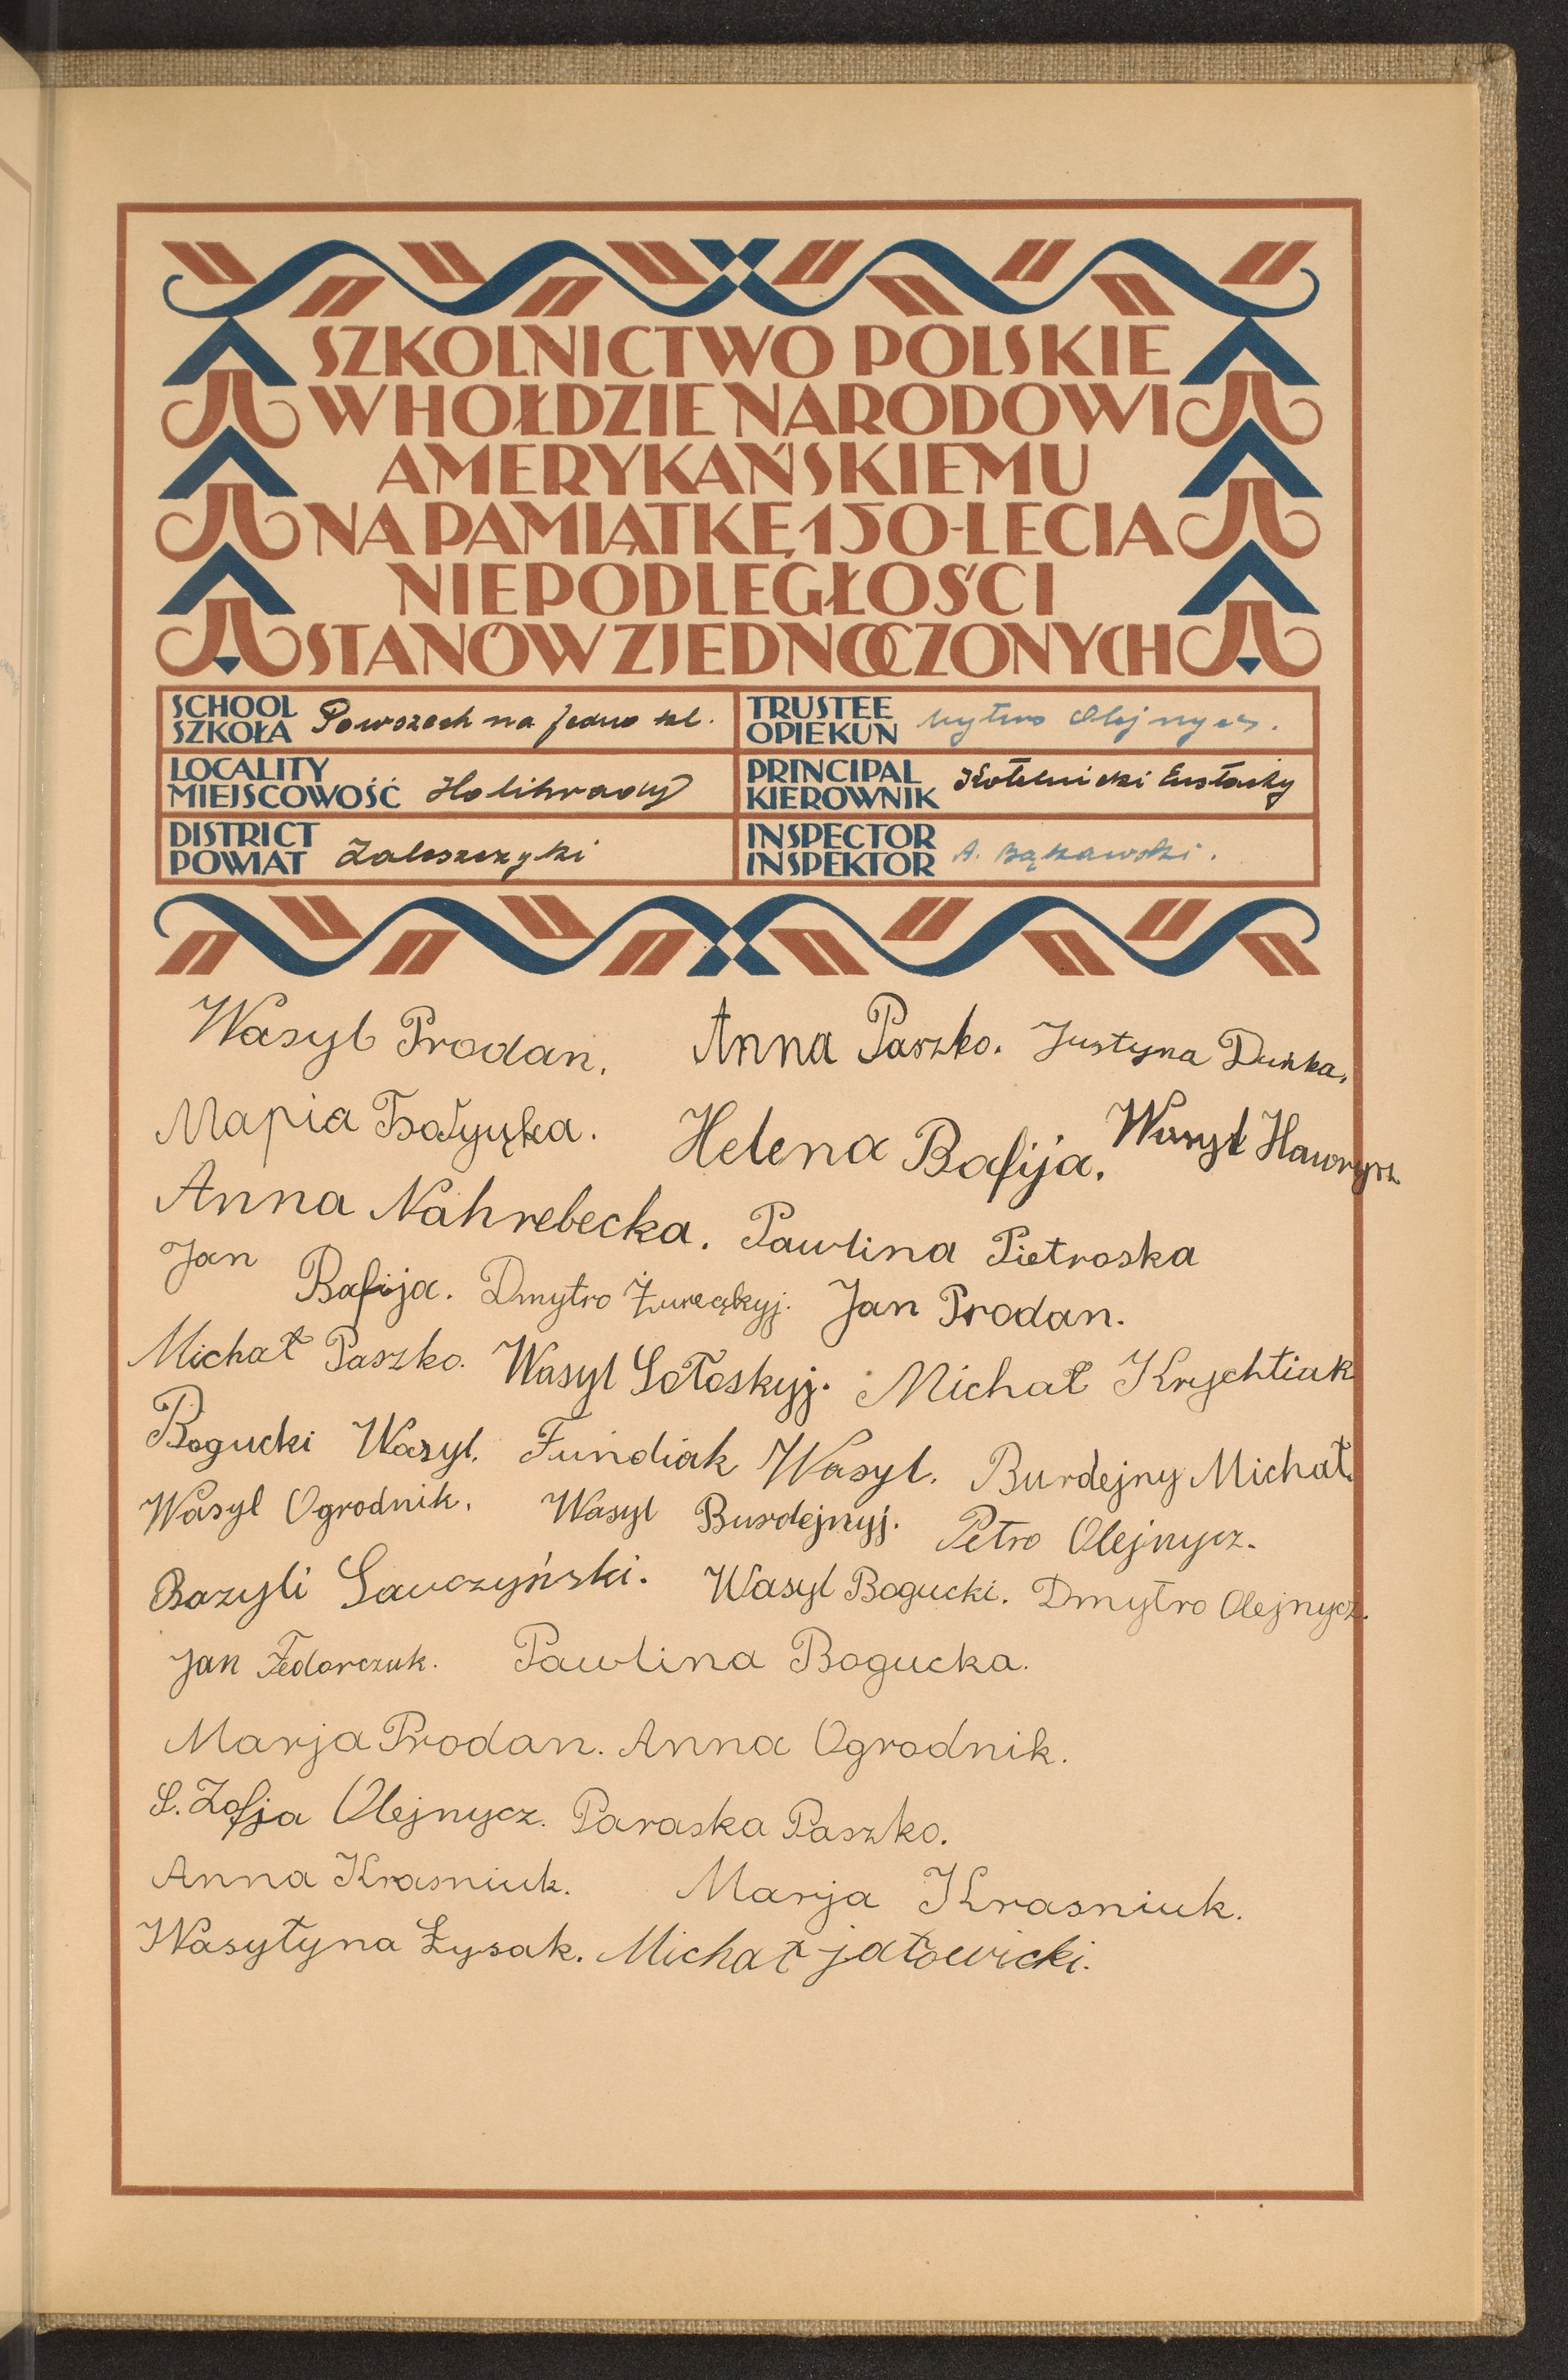 SZKOLNICTWO POLSKIE
W HOŁDZIE NARODOWI
AMERYKAŃSKIEMU
NA PAMIĄTKĘ 150-LECIA
NIEPODLEGŁOŚCI
STANÓW ZJEDNOCZONYCH
SCHOOL
SZKOŁA Powszech na jedno kl.
TRUSTEE
OPIEKUN Olejnycz.
LOCALITY
MIEJSCOWOŚĆ Holihrady
PRINCIPAL
KIEROWNIK Kotelnicki Eustachy
DISTRICT
POWIAT Zaleszczyki
INSPECTOR
INSPEKTOR A. Bąkowski.
Wasyl Prodan. Anna Paszko. Justyna Duńka.
Маріа Helena Bafija. Wasyl Hawrysz
Anna Nahrebecka. Pawlina Pietroska
Jan Bafija. Dmytro Żurecąkyj. Jan Prodan.
Michał Paszko. Wasyl Sołoskyj. Michał Krychtiuk
Bogucki Wasyl. Fundiak Wasyl. Burdejny Michał.
Wasyl Ogrodnik. Wasyl Burdejnyj. Petro Olejnycz.
Bazyli Sawczyński. Wasyl Bogucki. Dmytro Olejnycz.
Jan Fedorczuk. Pawlina Bogucka.
Marja Prodan. Anna Ogrodnik.
S. Zofja Olejnycz. Paraska Paszko.
Anna Krasniuk. Marja Krasniuk.
Wasyłyna Łysak. Michał jałowicki.